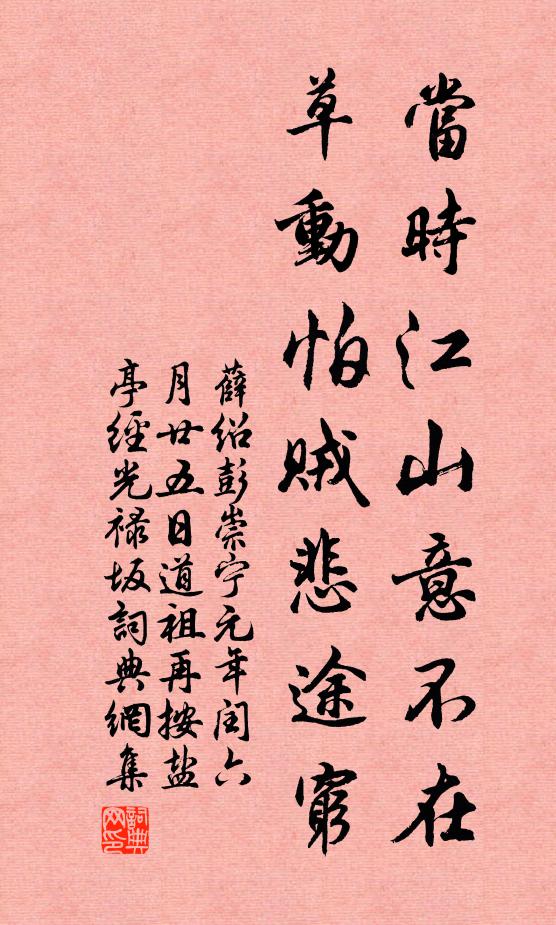 當時江山意不在
草動怕賊悲途窮
薛紹彭崇宁元年閏六
月廿五日道祖再按盐
亭經光禄坂詞典網集
詞典网印